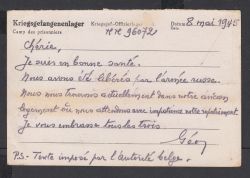 Kriegsgefangenenlager Kriegsgef.-Offizierlager Datum 8 mai 1945
Camp des prisonniers N° 96072 Date
Chérie,
Je suis en bonne santé.
Nous avons été libérés par l'armée russe.
Nous nous trouvons actuellement dans notre ancien
logement où nous attendons avec impatience notre rapatriement.
Je vous embrasse tous les trois.
Géo
P.S.- Texte imposé par l'Autorité belge.